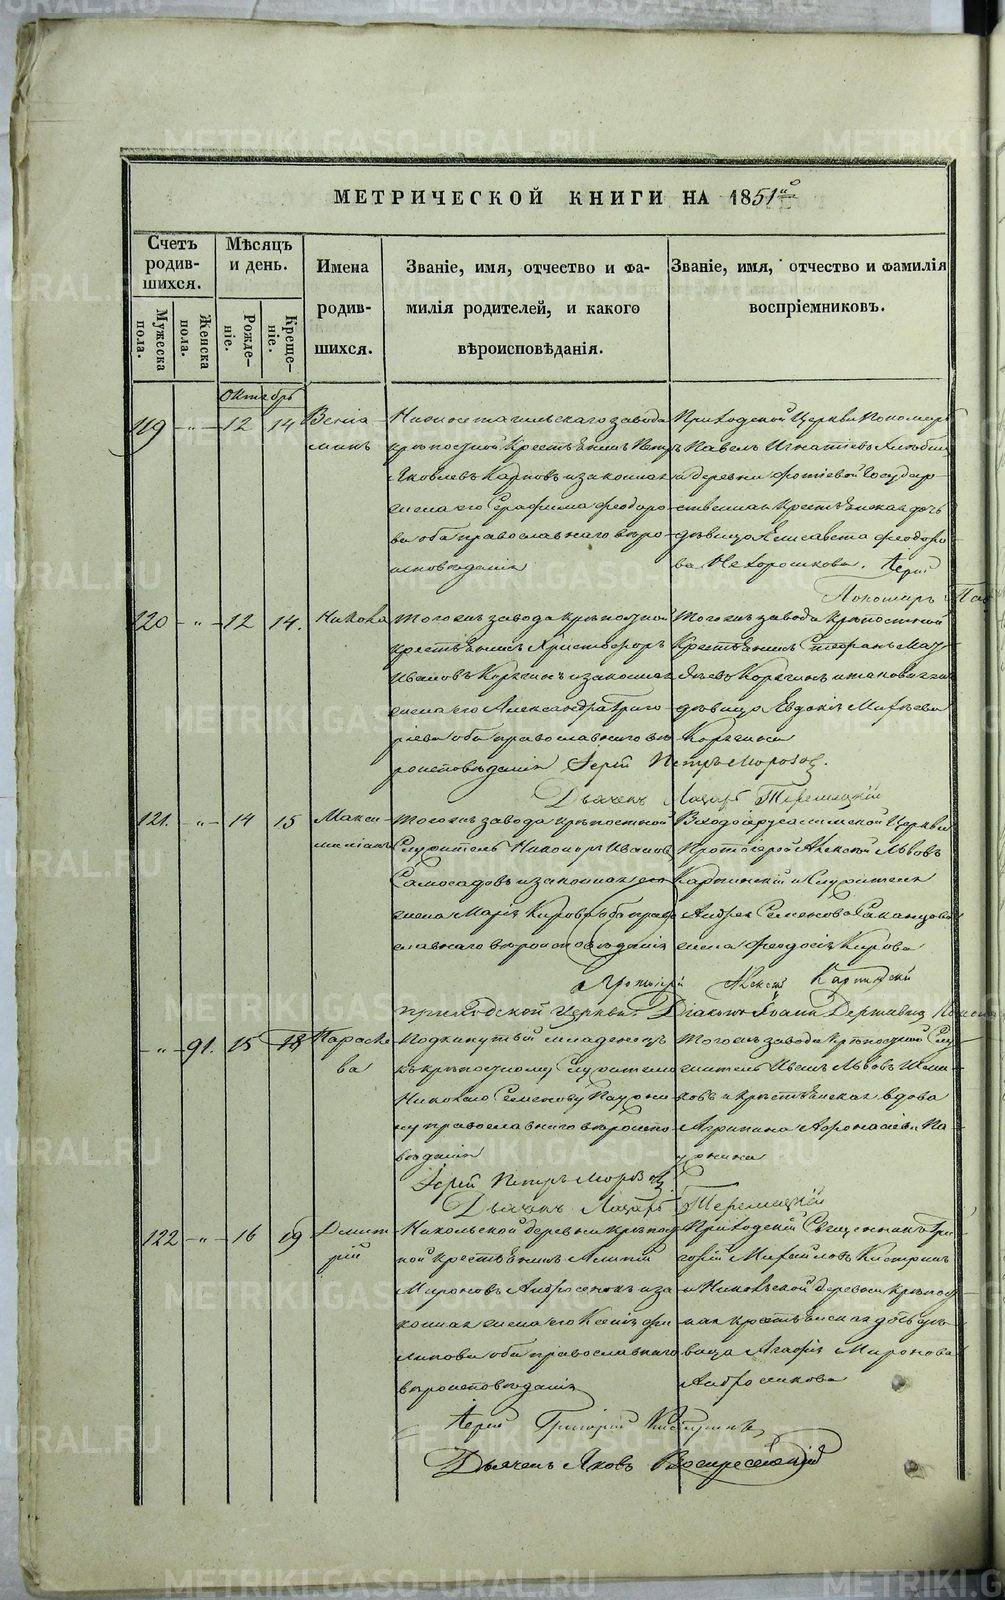 МЕТРИЧЕСКОЙ КНИГИ НА 1851й
Счетъ родив-шихся.
Мѣсяцъ и день.
Имена родив-шихся.
Званіе, имя, отчество и фа-
милія родителей, и какого
вѣроисповѣданія.
Званіе, имя, отчество и фамилія
воспріемниковъ.
Мужеска пола.
Женска пола.
Рожде-ніе.
Креще-ніе.
Октябрь
119 -„- 12 14 Веніа-
минъ
Нижнетагильскаго завода
крѣпостной крестьянинъ Петръ
Яковлевъ Карповъ и законная
жена его Серафима Феодоро-
ва оба православнаго вѣро-
исповѣданія
Приходской Церкви Пономарь
Павелъ Игнатіевъ
и деревни Фотіевой Государ-
ственная крестьянская дочь
дѣвица Елисавета Феодоро-
ва Нехорошкова. Іерей
Пономарь
120 -„- 12 14. Никола
Тогожъ завода крѣпостной
крестьянинъ Христофоръ
Ивановъ Корягинъ и законная
жена его Александра Григо-
ріева оба православнаго вѣ-
роисповѣданія
Тогожъ завода крѣпостной
крестьянинъ Стефанъ Мат-
ѳѣевъ Корягинъ и
дѣвица Евдокія Матѳѣева
Корягина
Іерей Петръ Морозов.
Дьячекъ Лазарь Теремецкій
121. -„- 14 15 Макси-
миліанъ
Тогожъ завода крѣпостной
Служитель Никоноръ Ивановъ
Самосадовъ и законная его
жена Марія Кирова оба право-
славнаго вѣроисповѣданія
Входоіерусалимской Церкви
Протоіерей Алексѣй Львовъ
Карпинскій и Служителя
Андрея Семенова
жена Феодосія Кирова
Протоіерей Алексѣй Карпинскій
приходской церкви Діаконъ Іоаннъ Державинъ
-„- 91. 15 18 Параске-
ва
Подкинутый младенецъ
къ крѣпостному Служителю
Николаю Семенову
православнаго вѣроиспо-
вѣданія
Тогожъ завода крѣпостной Слу-
житель Иванъ Львовъ
и крестьянская вдова
Агрипина Афонасіева
Іерей Петръ Морозов
Дьячекъ Лазарь Теремецкій
122 -„- 16 19 Димит-
рій
Никольской деревни крѣпост-
ной крестьянинъ
Мироновъ Андросенковъ и за-
конная жена его Ксенія Фи-
липова оба православнаго
вѣроисповѣданія
Приходскій Священникъ Гри-
горій Михайловъ
и Никольской деревни крѣпост-
ная крестьянская дочь дѣ-
вица Агафія Миронова
Андросенкова
Іерей Григорій
Дьячекъ Яковъ Воскресенскій
METRIKI.GASO-URAL.RU